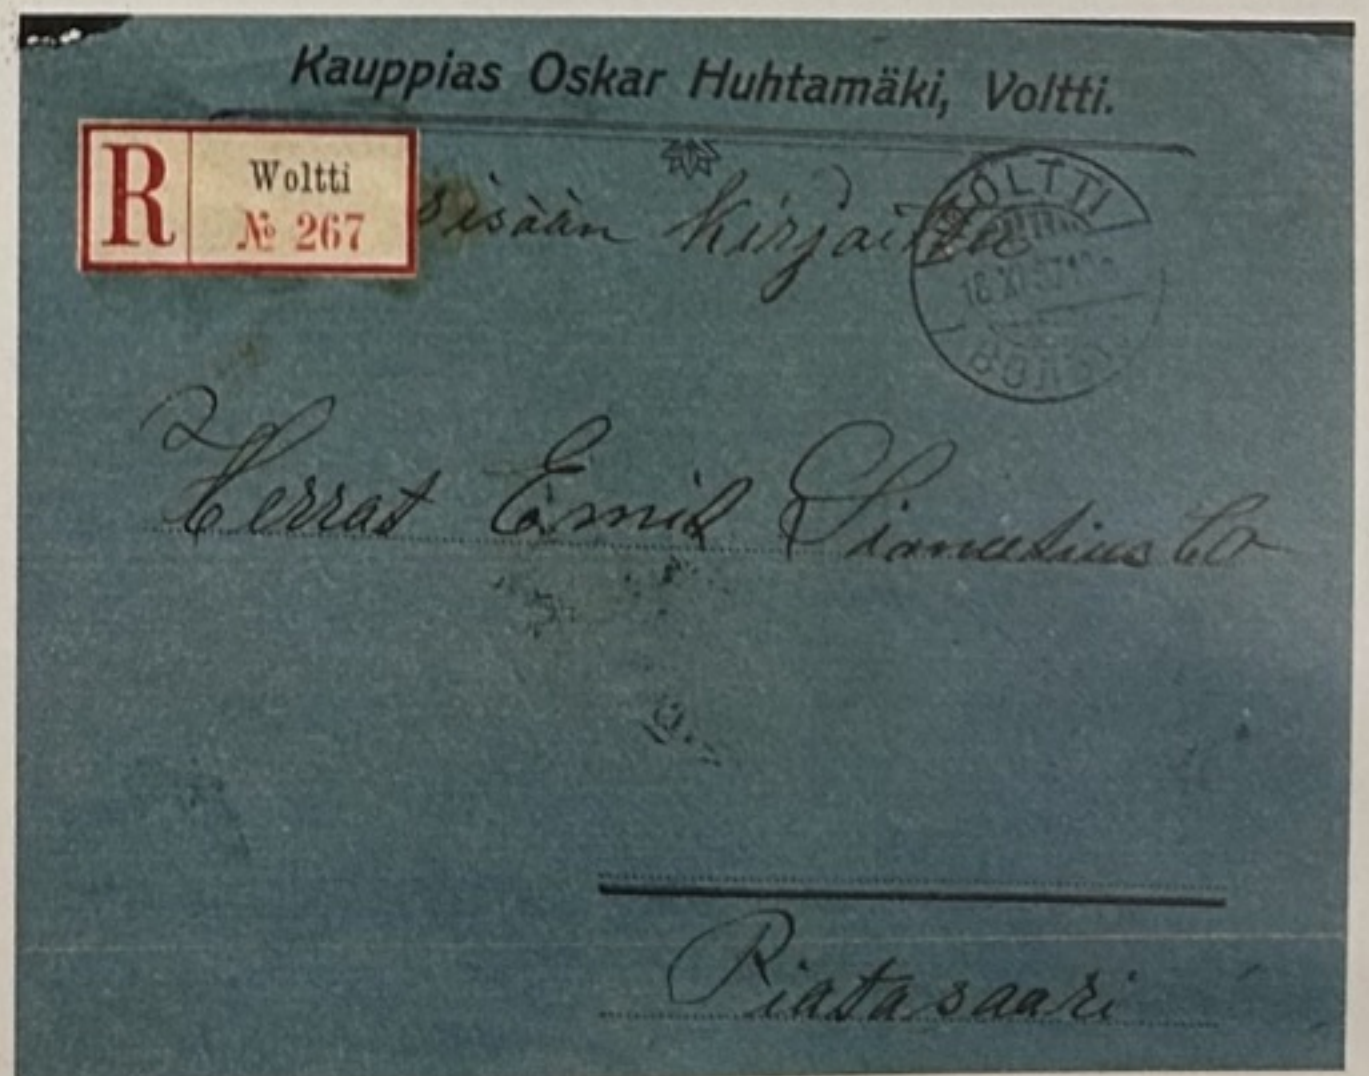 Kauppias Oskar Huhtamäki, Voltti.
R Woltti
№ 267
sisään Kirjaitta
WOLTTI
18.XI
Herrat Emil Co
Piatasaari